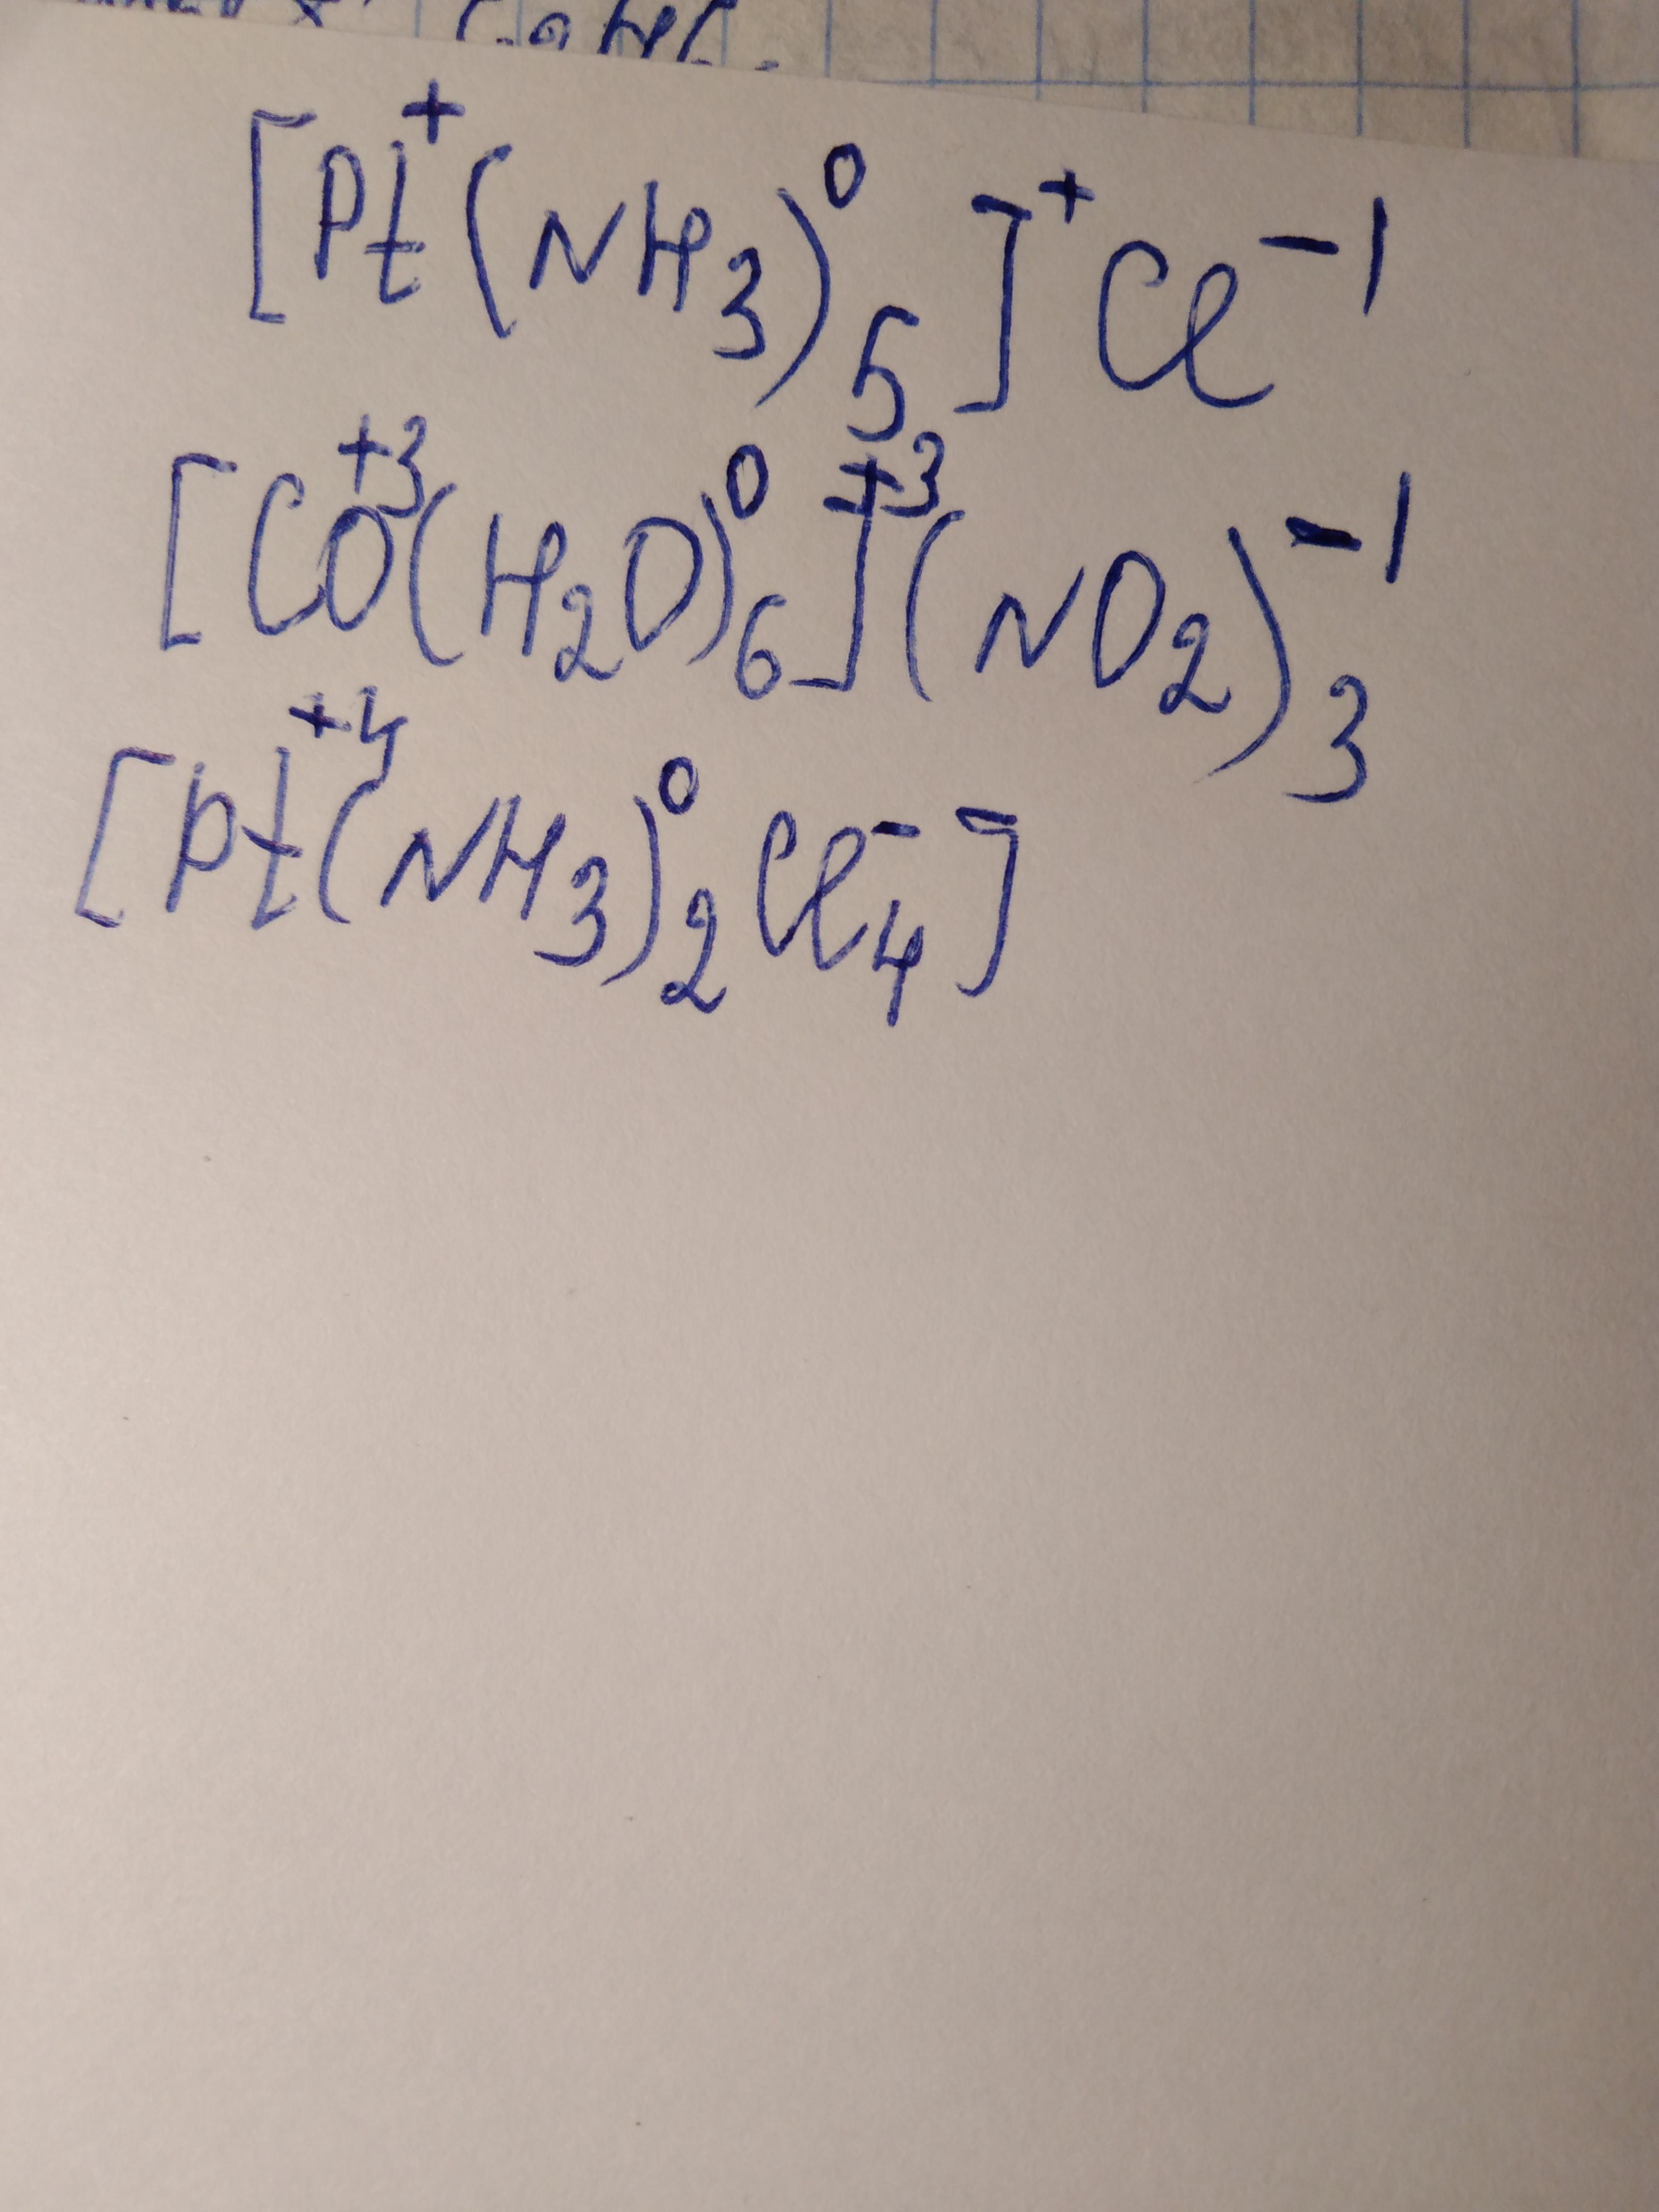 [Pt⁺(NH₃)⁰₅]⁺Cl⁻¹
[Co⁺³(H₂O)⁰₆]⁺³(NO₂)⁻¹₃
[Pt⁺⁴(NH₃)⁰₂Cl⁻₄]